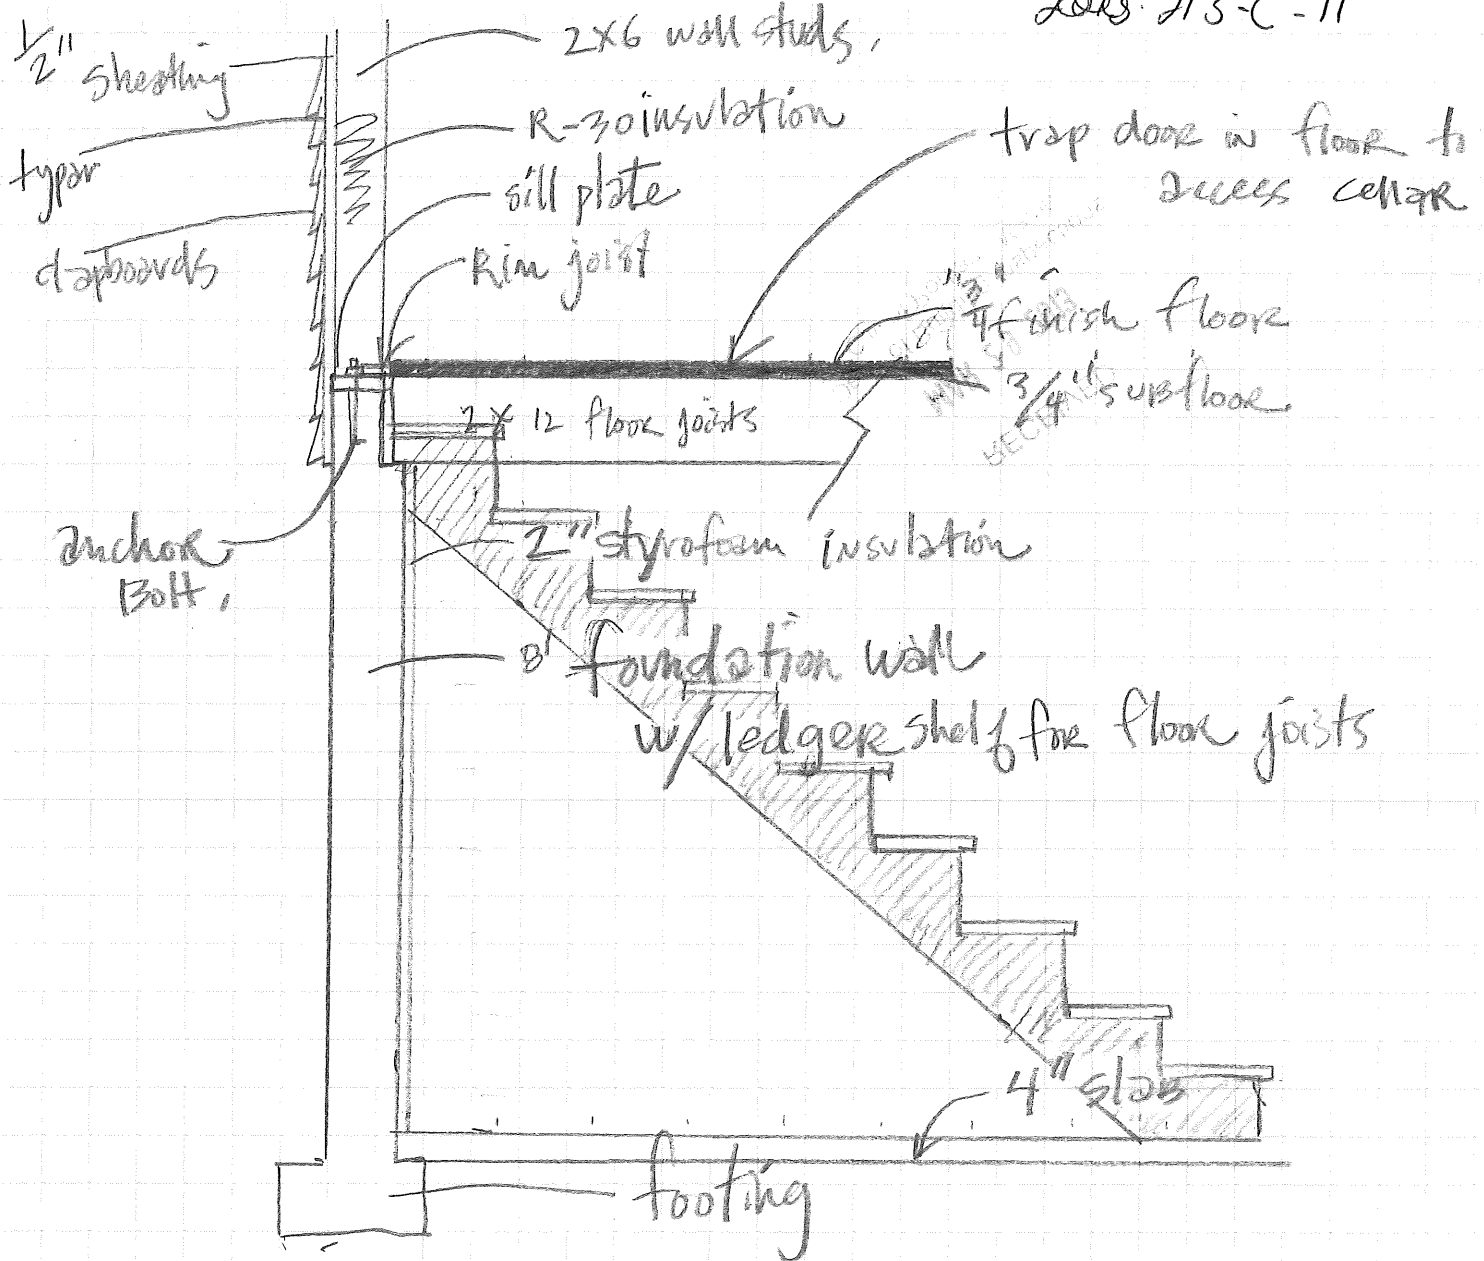 1/2" sheathing
2x6 wall studs.
R-30 insulation
typar
sill plate
clapboards
Rim joist
trap door in floor to
access cellar
3/4" finish floor
3/4" subfloor
2 x 12 floor joists
RECEIVED
anchor
Bolt.
2" styrofoam insulation
8' foundation wall
w/ ledger shelf for floor joists
4" slab
footing